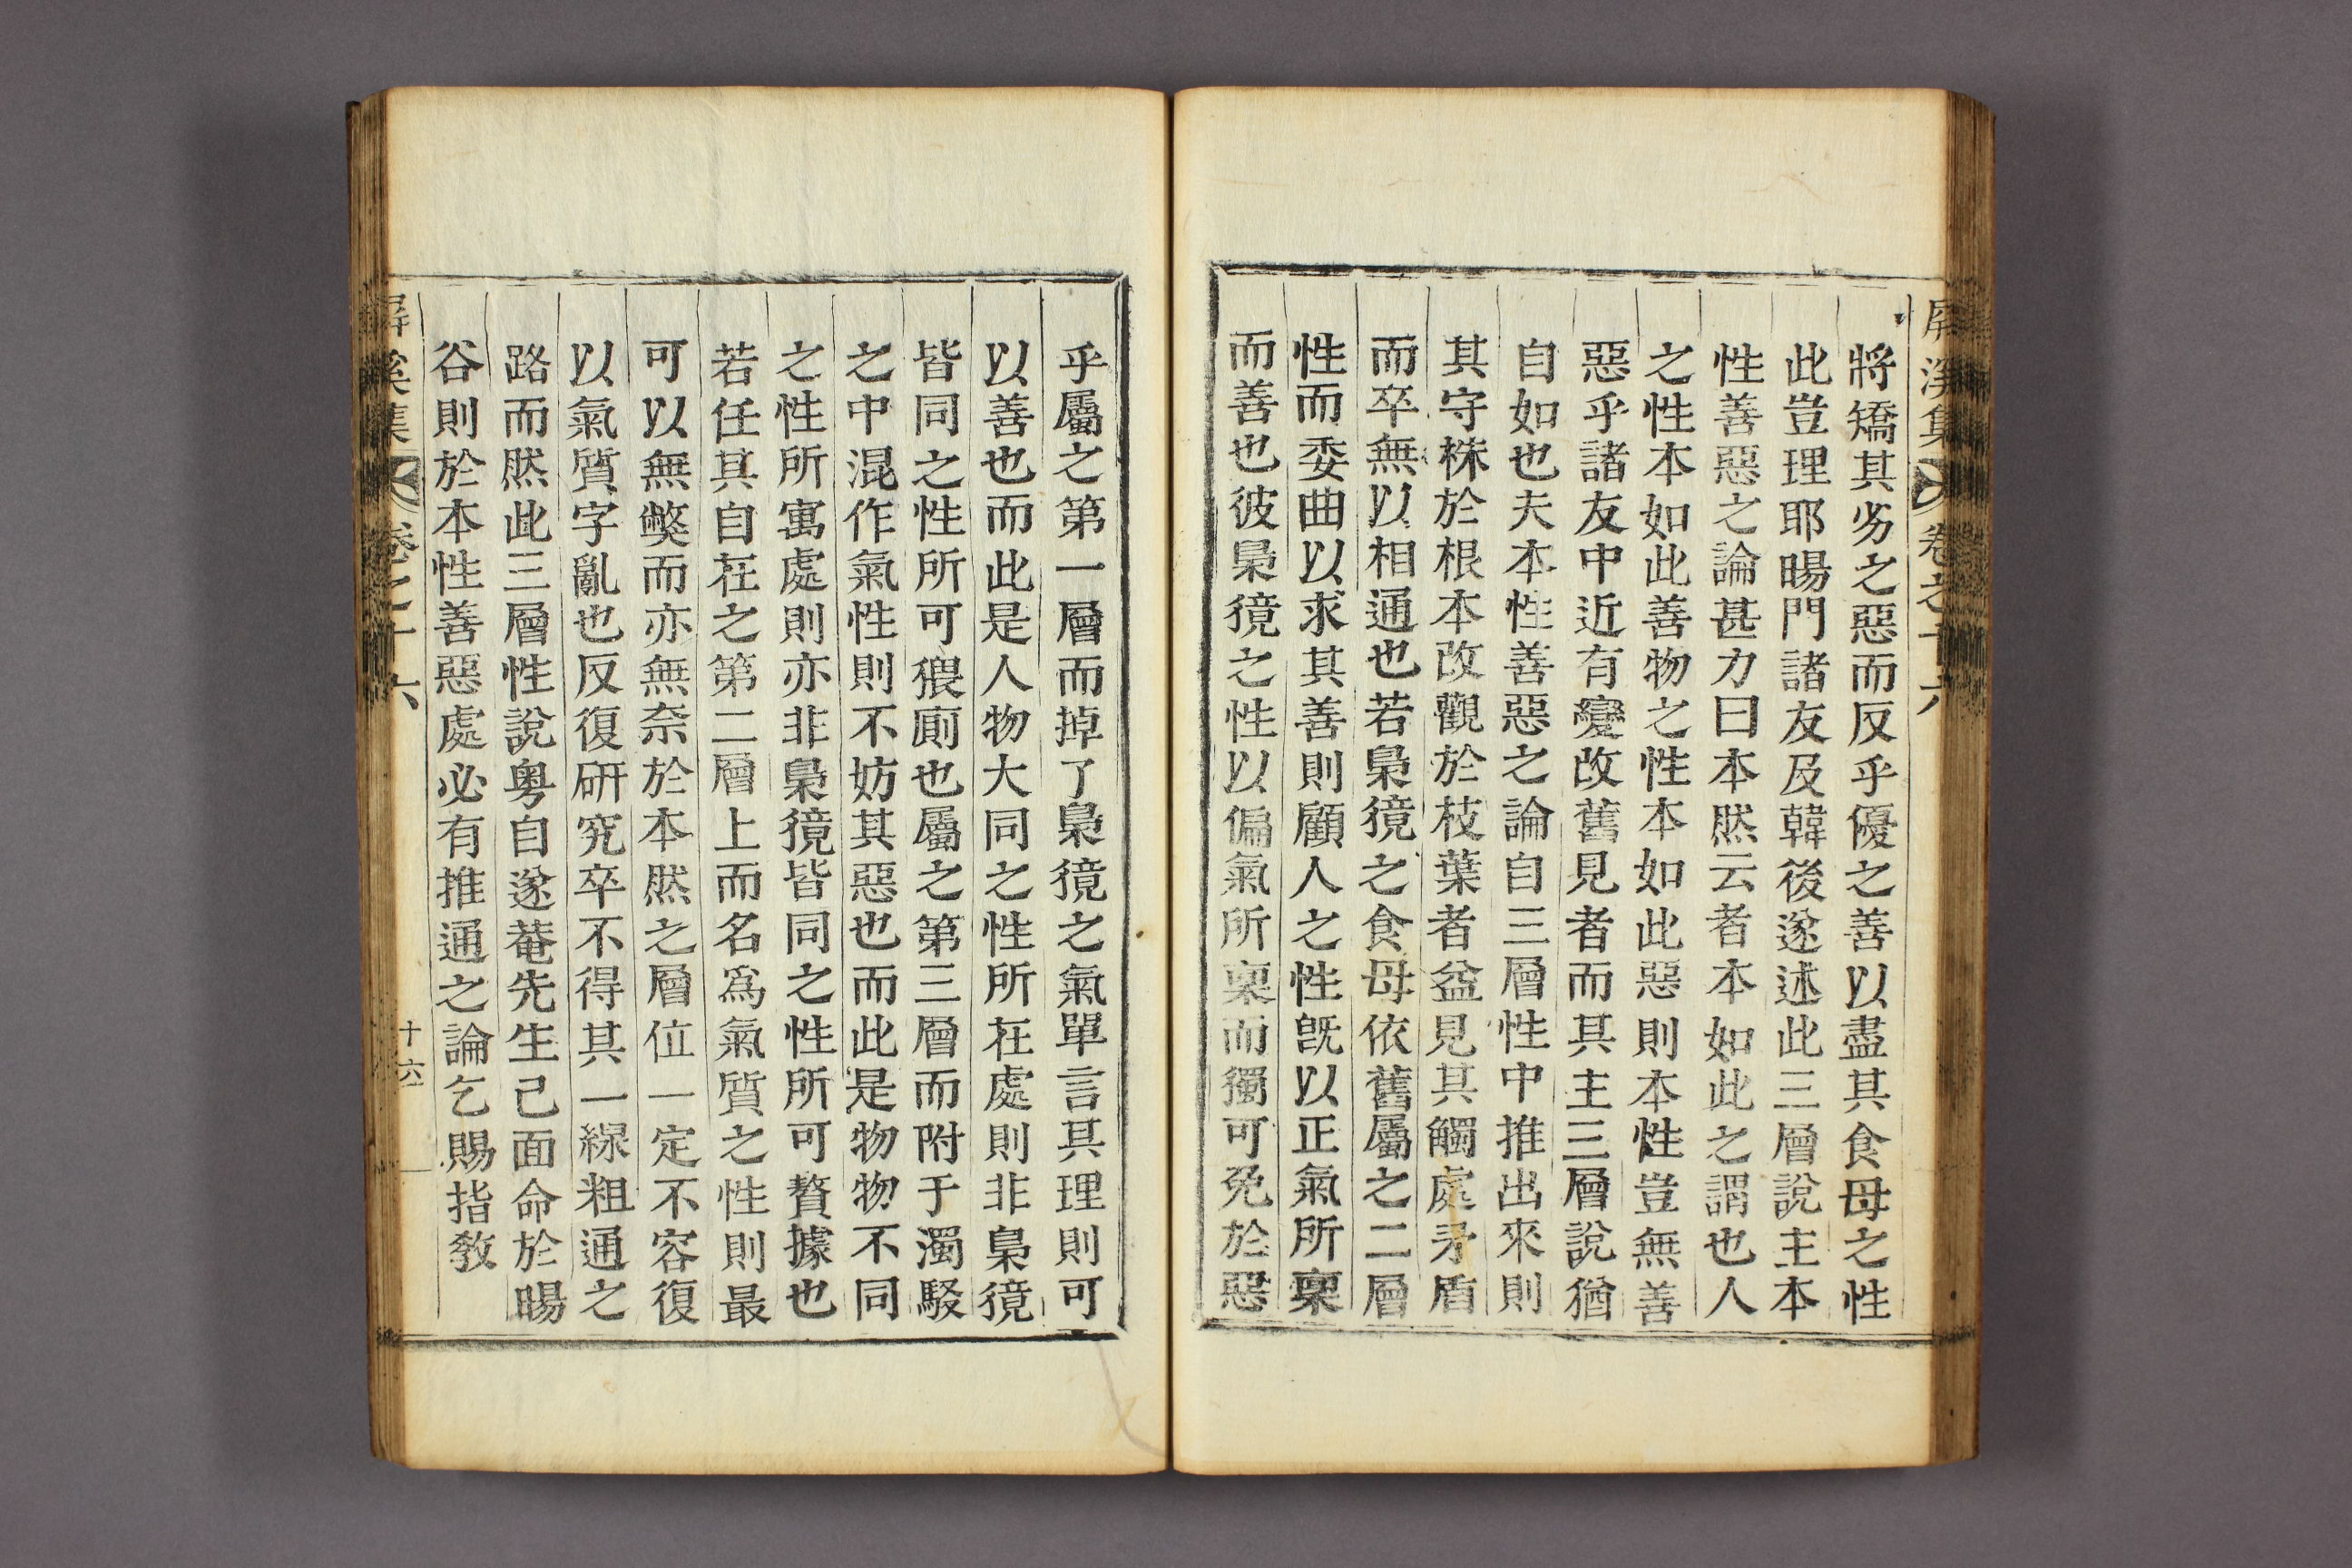 屏溪集 卷之十六
將矯其劣之惡而反乎優之善以盡其食母之性
此豈理耶暘門諸友及韓後遂述此三層說主本
性善惡之論甚力曰本然云者本如此之謂也人
之性本如此善物之性本如此惡則本性豈無善
惡乎諸友中近有變改舊見者而其主三層說猶
自如也夫本性善惡之論自三層性中推出來則
其守株於根本改觀於枝葉者益見其觸處矛盾
而卒無以相通也若梟獍之食母依舊屬之二層
性而委曲以求其善則顧人之性旣以正氣所稟
而善也彼梟獍之性以偏氣所稟而獨可免於惡
乎屬之第一層而掉了梟獍之氣單言其理則可
以善也而此是人物大同之性所在處則非梟獍
皆同之性所可猥廁也屬之第三層而附于濁駁
之中混作氣性則不妨其惡也而此是物物不同
之性所寓處則亦非梟獍皆同之性所可贅據也
若任其自在之第二層上而名爲氣質之性則最
可以無獘而亦無奈於本然之層位一定不容復
以氣質字亂也反復硏究卒不得其一線粗通之
路而然此三層性說粤自遂菴先生已面命於暘
谷則於本性善惡處必有推通之論乞賜指敎
屏溪集 卷之十六 十六